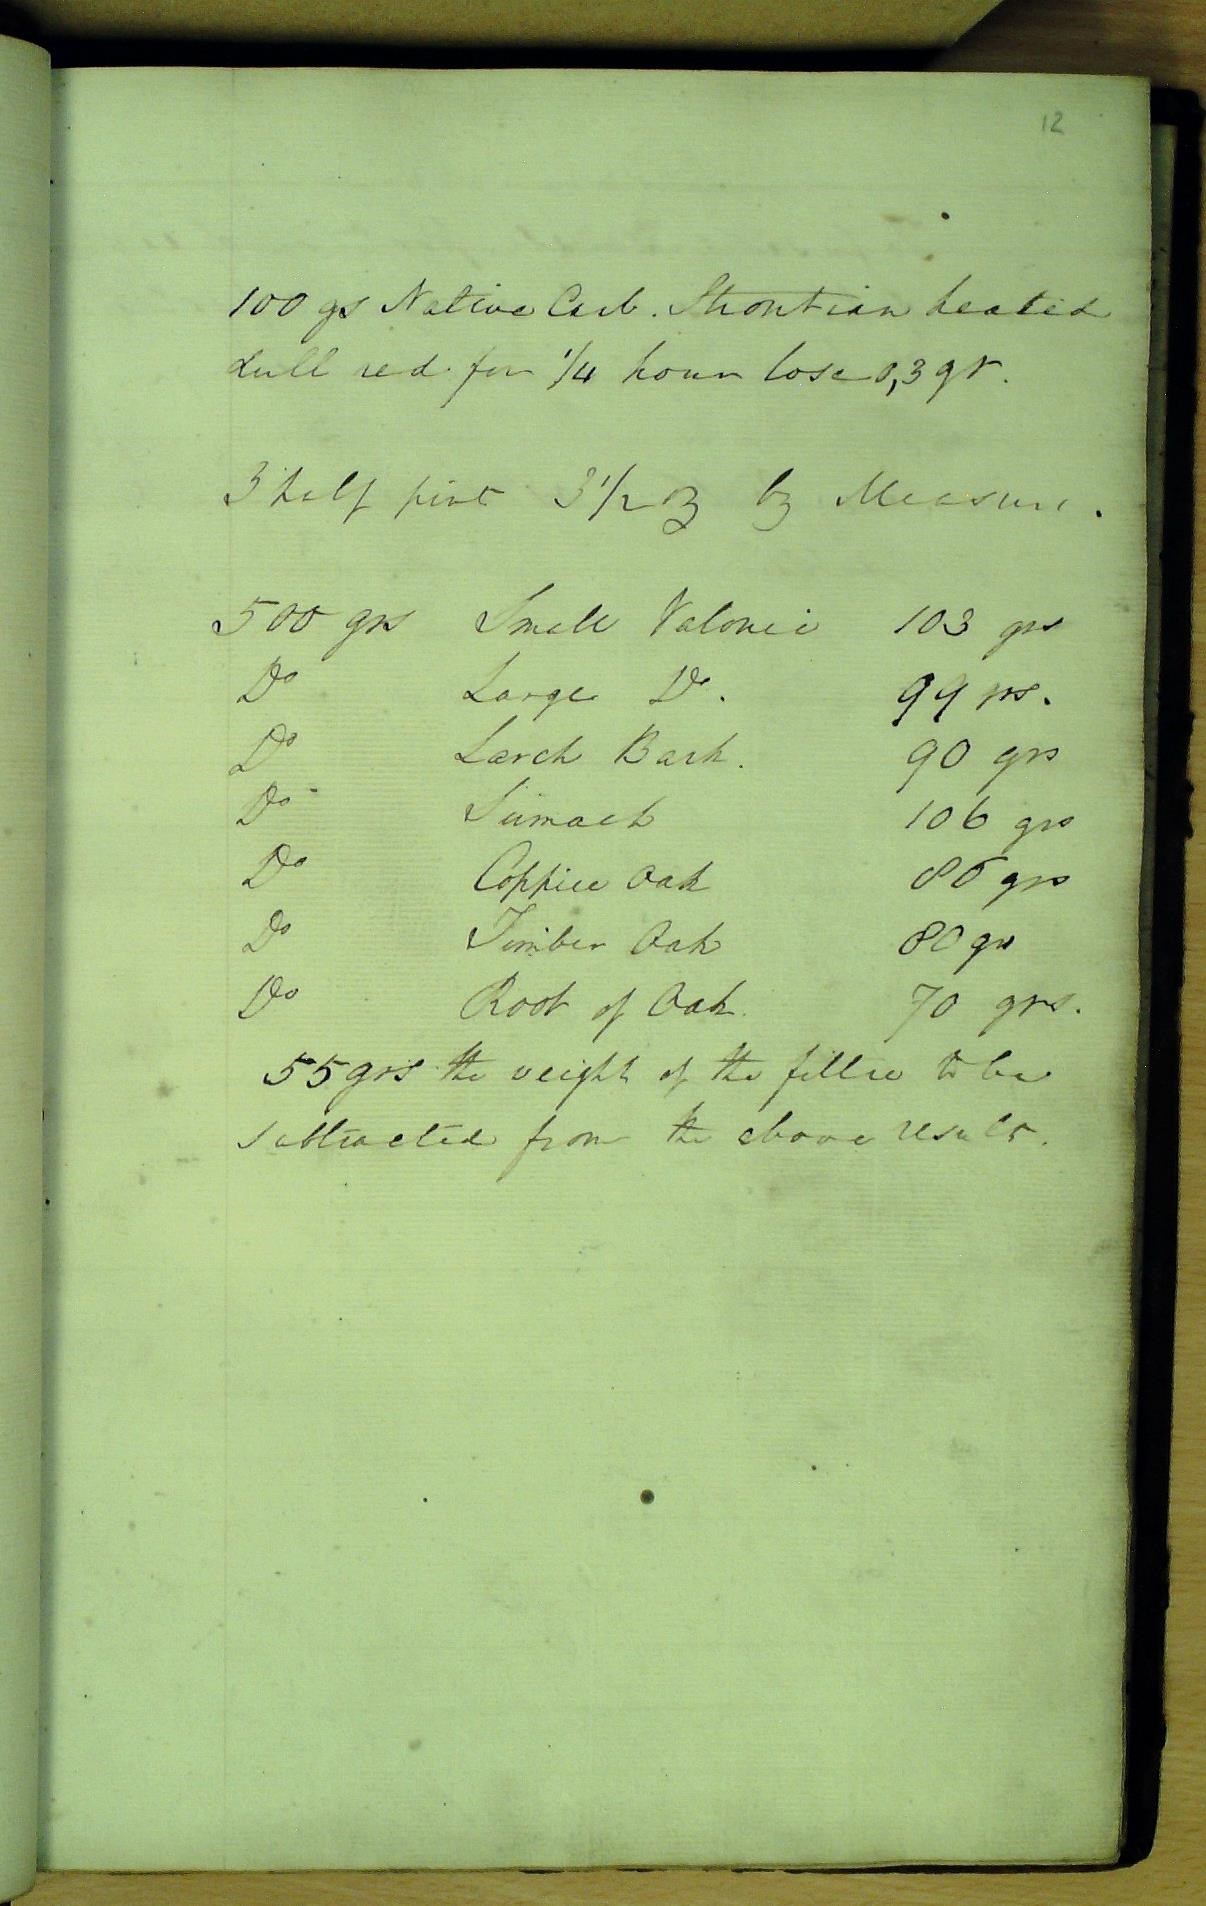 12
100 gs Native Carb. Strontian heated
dull red for 1/4 hour lose 0,3 gr.
3 half pint 3 1/2 oz by Measure.
500 grs Small Valonia 103 grs
Do Large Do. 99 grs.
Do Larch Bark. 90 grs
Do Sumach 106 grs
Do Coppice Oak 86 grs
Do Timber Oak 80 grs
Do Root of Oak. 70 grs.
55 grs the weight of the filtre to be
subtracted from the above result.